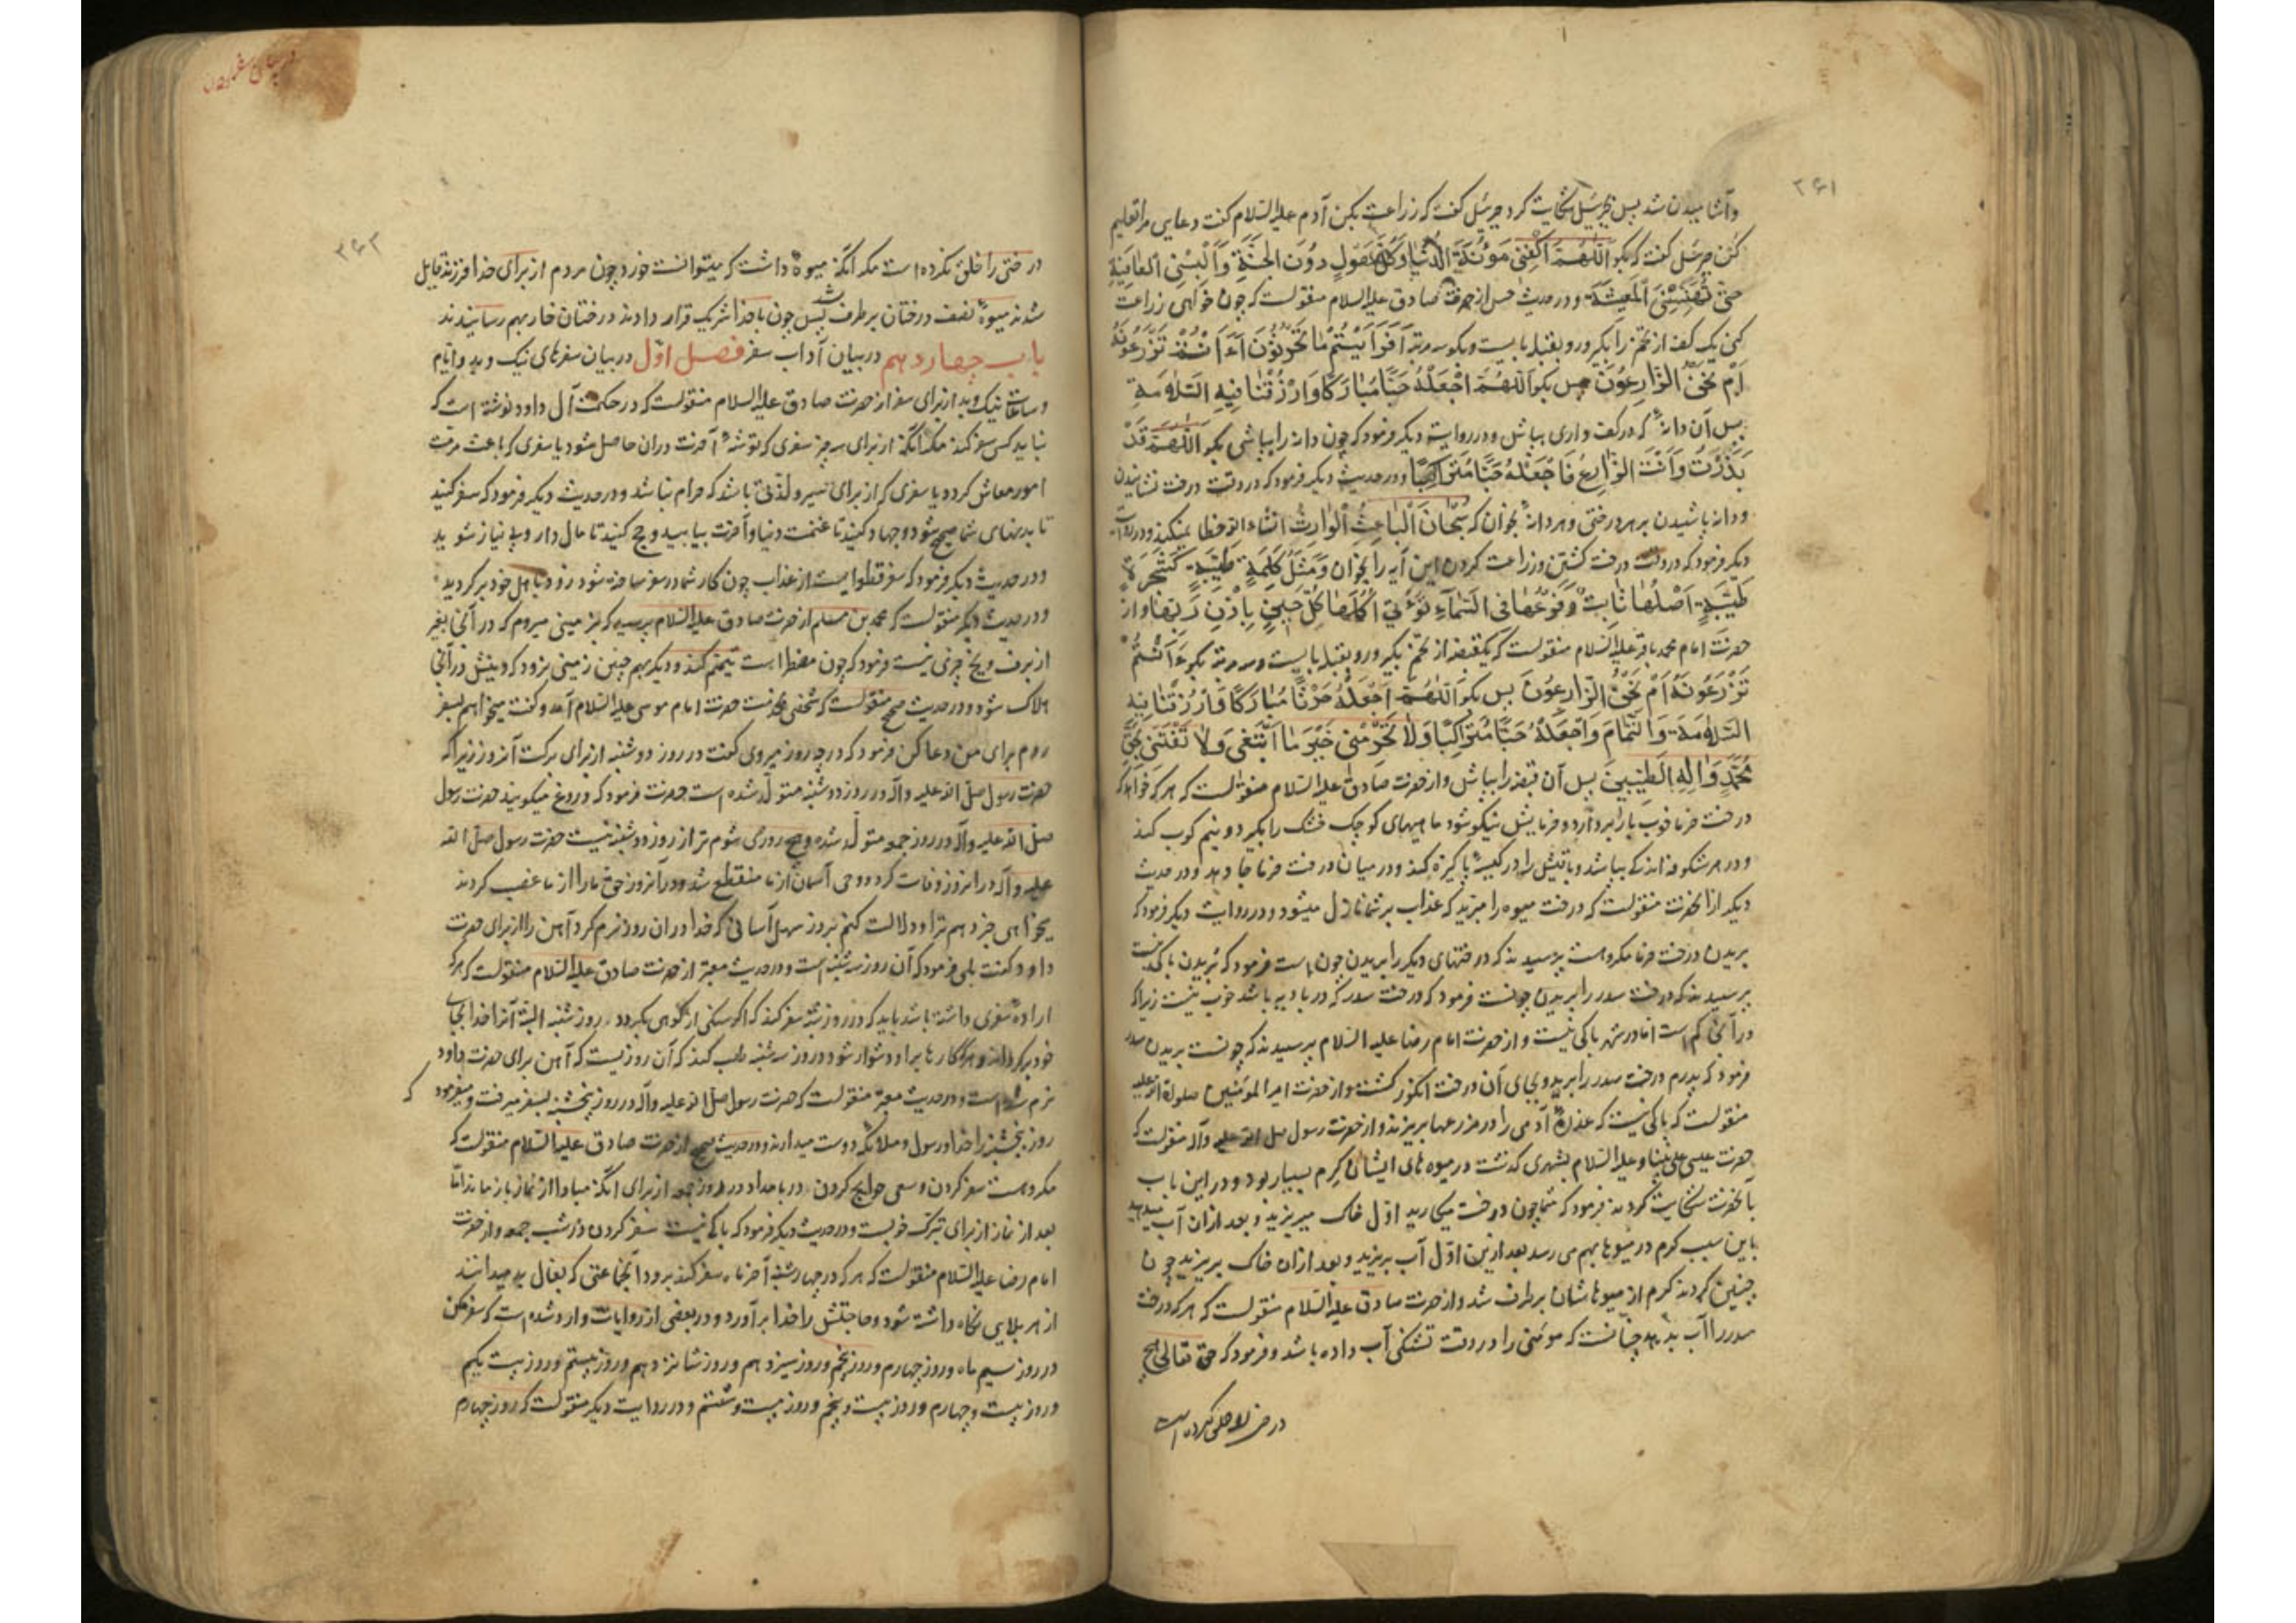 ۲۶۱
وآشامیدن شد پس بجبرئیل شکایت کرد جبرئیل گفت که زراعت بکن آدم علیه السلام گفت دعایی مرا تعلیم
کن جبرئیل گفت که بگو اَللّٰهُمَّ اکْفِنِی مَؤُنَةَ الدُّنْیا وَکُلَّ هَوْلٍ دُونَ الْجَنَّةِ وَاَلْبِسْنِی الْعافِیَةَ
حَتّی تُهَنِّئَنِی الْمَعیشَةَ و در حدیث حسن از حضرت صادق علیه السلام منقولست که چون خواهی زراعت
کنی یک کف از تخم را بگیر و رو بقبله بایست و بگو سه مرتبه اَفَرَاَیْتُمْ ما تَحْرُثُونَ ءَاَنْتُمْ تَزْرَعُونَهُ
اَمْ نَحْنُ الزّارِعُونَ پس بگو اَللّٰهُمَّ اجْعَلْهُ حَبّاً مُبارَکاً وَارْزُقْنا فیهِ السَّلامَةَ
پس آن دانهٔ که در کف داری بپاش و در روایت دیگر فرمود که چون دانه را بپاشی بگو اَللّٰهُمَّ قَدْ
بَذَرْتُ وَاَنْتَ الزّارِعُ فَاجْعَلْهُ حَبّاً مُتَراکِباً و در حدیث دیگر فرمود که در وقت درخت نشانیدن
و دانه پاشیدن بر هر درختی و هر دانهٔ بخوان که سُبْحانَ الْباعِثِ الْوارِثِ انشاءالله خطا نمیکند و در روایت
دیگر فرمود که در وقت درخت کشتن و زراعت کردن این آیه را بخوان وَمَثَلُ کَلِمَةٍ طَیِّبَةٍ کَشَجَرَةٍ
طَیِّبَةٍ اَصْلُها ثابِتٌ وَفَرْعُها فِی السَّماءِ تُؤْتِی اُکُلَها کُلَّ حینٍ بِاِذْنِ رَبِّها و از
حضرت امام محمد باقر علیه السلام منقولست که یکقبضه از تخم بگیر و رو بقبله بایست و سه مرتبه بگو ءَاَنْتُمْ
تَزْرَعُونَهُ اَمْ نَحْنُ الزّارِعُونَ پس بگو اَللّٰهُمَّ اجْعَلْهُ حَرْثاً مُبارَکاً وَارْزُقْنا فیهِ
السَّلامَةَ وَالتَّمامَ وَاجْعَلْهُ حَبّاً مُتَراکِباً وَلا تَحْرِمْنی خَیْرَ ما اَبْتَغی وَلا تَفْتِنّی بِحَقِّ
مُحَمَّدٍ وَآلِهِ الطَّیِّبینَ پس آن قبضه را بپاش و از حضرت صادق علیه السلام منقولست که هر که خواهد که
درخت خرما خوب بار بردارد و خرمایش نیکو شود ماهیهای کوچک خشک را بگیرد و نیم کوب کند
و در هر شکوفه اندکی بپاشد و باقیش را در کیسهٔ پاکیزه کند و در میان درخت خرما جا دهد و در حدیث
دیگر از آنحضرت منقولست که درخت میوه را مبرید که عذاب بر شما نازل میشود و در روایت دیگر فرمود که
بریدن درخت خرما مکروهست پرسیدند که درختهای دیگر را بریدن چون است فرمود که بریدن باکی نیست
پرسیدند که درخت سدر را بریدن چونست فرمود که درخت سدر که در بادیه باشد خوب نیست زیرا که
در آنجا کم است اما در شهر باکی نیست و از حضرت امام رضا علیه السلام پرسیدند که چونست بریدن سدر
فرمود که پدرم درخت سدر را برید و بجای آن درخت انگور کشت و از حضرت امیر المومنین صلوة الله علیه
منقولست که باکی نیست که عذرهٔ آدمی را در مزرعها بریزند و از حضرت رسول صلی الله علیه وآله منقولست که
حضرت عیسی علی نبینا و علیه السلام بشهری گذشت در میوه های ایشان کرم بسیار بود و در این باب
بآنحضرت شکایت کردند فرمود که شما چون درخت میکارید اوّل خاک میریزید و بعد از آن آب میدهید
باین سبب کرم در میوها بهم می رسد بعد ازین اوّل آب بریزید و بعد از آن خاک بریزید چون
چنین کردند کرم از میوهاشان برطرف شد و از حضرت صادق علیه السلام منقولست که هر که درخت
سدر را آب بدهد چنانست که مومنی را در وقت تشنگی آب داده باشد و فرمود که حق تعالی هیچ
درختی را خلق نکرده است
در بیان سفر کردن
۲۶۲
درختی را خلق نکرده است مکر آنکه میوهٔ داشت که میتوانست خورد چون مردم از برای خدا فرزند قایل
شدند میوهٔ نصف درختان برطرف شد پس چون با خدا شریک قرار دادند درختان خار بهم رسانیدند
باب چهاردهم در بیان آداب سفر فصل اوّل در بیان سفرهای نیک و بد و ایام
و ساعات نیک و بد از برای سفر از حضرت صادق علیه السلام منقولست که در حکمت آل داود نوشته است که
نباید کس سفر کند مکر آنکه از برای سه چیز سفری که توشهٔ آخرت در آن حاصل شود یا سفری که باعث مرمت
امور معاش گردد یا سفری که از برای سیر و لذتی باشد که حرام نباشد و در حدیث دیگر فرمود که سفر کنید
تا بدنهای شما صحیح شود و جهاد کنید تا غنیمت دنیا و آخرت بیابید و حج کنید تا مال دار و بی نیاز شوید
و در حدیث دیگر فرمود که سفر قطعه ایست از عذاب چون کار شما در سفر ساخته شود زود باهل خود برگردید
و در حدیث دیگر منقولست که محمد بن مسلم از حضرت صادق علیه السلام پرسید که بزمینی میروم که در آنجا بغیر
از برف و یخ چیزی نیست فرمود که چون مضطر است تیمّم کند و دیگر بهم چنین زمینی نرود که دینش در آنجا
هلاک شود و در حدیث صحیح منقولست که شخصی بخدمت حضرت امام موسی علیه السلام آمد و گفت میخواهم بسفر
روم برای من دعا کن فرمود که در چه روز میروی گفت در روز دوشنبه از برای برکت آنروز زیرا که
حضرت رسول صلی الله علیه وآله در روز دوشنبه متولّد شده است حضرت فرمود که دروغ میگویند حضرت رسول
صلی الله علیه وآله در روز جمعه متولّد شده و هیچ روزی شوم تر از روز دوشنبه نیست حضرت رسول صلی الله
علیه وآله در آنروز وفات کرد و وحی آسمان از ما منقطع شد و در آنروز حق ما را از ما غصب کردند
میخواهی خبر دهم ترا و دلالت کنم بروز سهل آسانی که خدا در آن روز نرم کرد آهن را از برای حضرت
داود گفت بلی فرمود که آن روز سه شنبه است و در حدیث معتبر از حضرت صادق علیه السلام منقولست که هر که
ارادهٔ سفری داشته باشد باید که در روز شنبه سفر کند که اگر سنگی از کوهی بگردد در روز شنبه البتة آنرا خدا بجای
خود برگرداند و هر که کارها بر او دشوار شود در روز سه شنبه طلب کند که آن روزیست که آهن برای حضرت داود
نرم شده است و در حدیث معتبر منقولست که حضرت رسول صلی الله علیه وآله در روز پنجشنبه بسفر میرفت و میفرمود که
روز پنجشنبه را خدا و رسول و ملائکه دوست میدارند و در حدیث صحیح از حضرت صادق علیه السلام منقولست که
مکروهست سفر کردن و سعی حوایج کردن در بامداد در روز جمعه از برای آنکه مبادا از نماز باز ماند امّا
بعد از نماز از برای تبرّک خوبست و در حدیث دیگر فرمود که باکی نیست سفر کردن در شب جمعه و از حضرت
امام رضا علیه السلام منقولست که هر که در چهارشنبه آخر ماه سفر کند بردّ آنجماعتی که بفال بد میدانند
از هر بلایی نگاه داشته شود و حاجتش را خدا برآورد و در بعضی از روایات وارد شده است که سفر مکن
در روز سیم ماه و روز چهارم و روز پنجم و روز سیزدهم و روز شانزدهم و روز بیستم و روز بیست یکم
و روز بیست و چهارم و روز بیست و پنجم و روز بیست و ششم و در روایت دیگر منقولست که روز چهارم